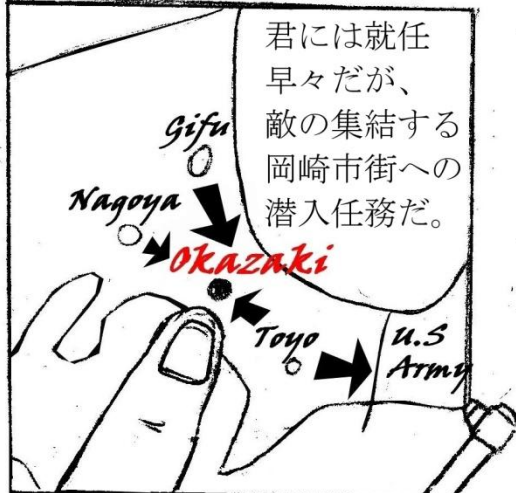 君には就任
早々だが、
敵の集結する
岡崎市街への
潜入任務だ。
Gifu
Nagoya
Okazaki
Toyo
U.S
Army